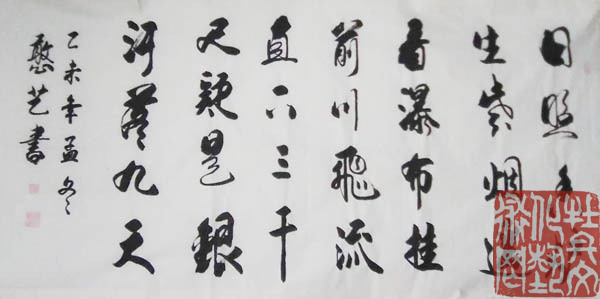 日照香
生紫烟遥
看瀑布挂
前川飛流
直下三千
尺疑是銀
河落九天
乙未年孟冬
憨艺書